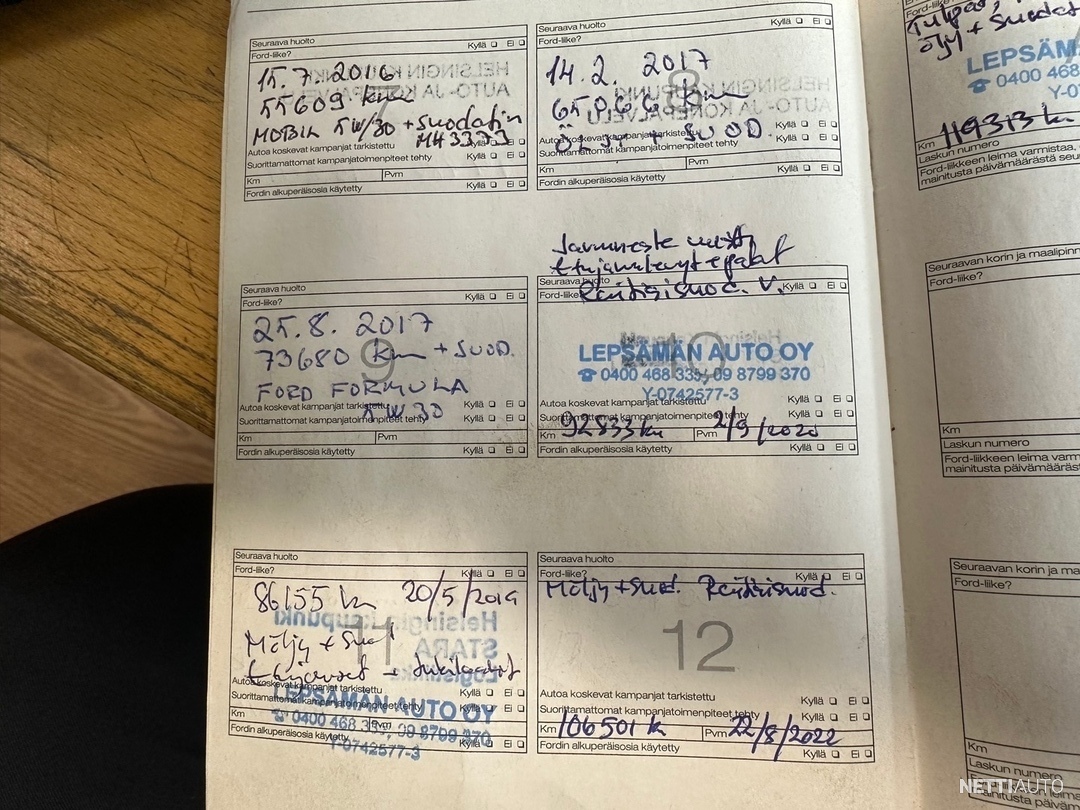 Seuraava huolto
Ford-liike? Kyllä Ei
15.7. 2016
55609 km
MOBIL 5W/30 + suodatin
Autoa koskevat kampanjat tarkistettu
Suorittamattomat kampanjatoimenpiteet tehty Kyllä Ei
Km Pvm
Fordin alkuperäisosia käytetty Kyllä Ei
Seuraava huolto
Ford-liike? Kyllä Ei
8
14.2. 2017
65066 km
ÖLJY + SUOD.
Autoa koskevat kampanjat tarkistettu Kyllä Ei
Suorittamattomat kampanjatoimenpiteet tehty Kyllä Ei
Km Pvm
Fordin alkuperäisosia käytetty Kyllä Ei
Seuraava huolto
Ford-liike? Kyllä Ei
9
25.8. 2017
73680 km + SUOD.
FORD FORMULA
5W30
Autoa koskevat kampanjat tarkistettu Kyllä Ei
Suorittamattomat kampanjatoimenpiteet tehty Kyllä Ei
Km Pvm
Fordin alkuperäisosia käytetty Kyllä Ei
Jarruneste
Seuraava huolto
Ford-liike? Raitisisuod. V. Kyllä Ei
10
LEPSÄMÄN AUTO OY
☎ 0400 468 339, 09 8799 370
Y-0742577-3
Autoa koskevat kampanjat tarkistettu Kyllä Ei
Suorittamattomat kampanjatoimenpiteet tehty Kyllä Ei
Km 92833 km Pvm 2/9/2020
Fordin alkuperäisosia käytetty Kyllä Ei
Seuraava huolto
Ford-liike? Kyllä Ei
11
86155 km 20/5/2019
Möljy + Suod
Autoa koskevat kampanjat tarkistettu Kyllä Ei
Suorittamattomat kampanjatoimenpiteet tehty Kyllä Ei
LEPSÄMÄN AUTO OY
Km Pvm
☎ 0400 468 339, 09 8799 370
Fordin alkuperäisosia käytetty Kyllä Ei
Y-0742577-3
Seuraava huolto
Ford-liike? Kyllä Ei
Möljy + Suod. Raitisisuod.
12
Autoa koskevat kampanjat tarkistettu Kyllä Ei
Suorittamattomat kampanjatoimenpiteet tehty Kyllä Ei
Km 106501 k Pvm 22/8/2022
Fordin alkuperäisosia käytetty Kyllä Ei
Tulpat,
öljy + Suodat
LEPSÄM
☎ 0400 468
Y-07
Km 119313 km
Laskun numero
Ford-liikkeen leima varmistaa,
mainitusta päivämäärästä seu
Seuraavan korin ja maalipinn
Ford-liike?
Km
Laskun numero
Ford-liikkeen leima varmista
mainitusta päivämääräst
Seuraavan korin ja ma
Ford-liike?
Km
Laskun numero
Ford-liikkeen leima
mainitusta päiv
NETTIAUTO